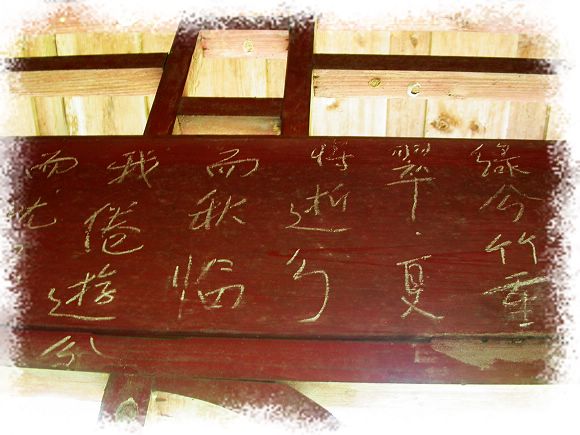 綠兮竹重
翠·夏
將逝兮
而秋臨
我倦遊兮
而忧